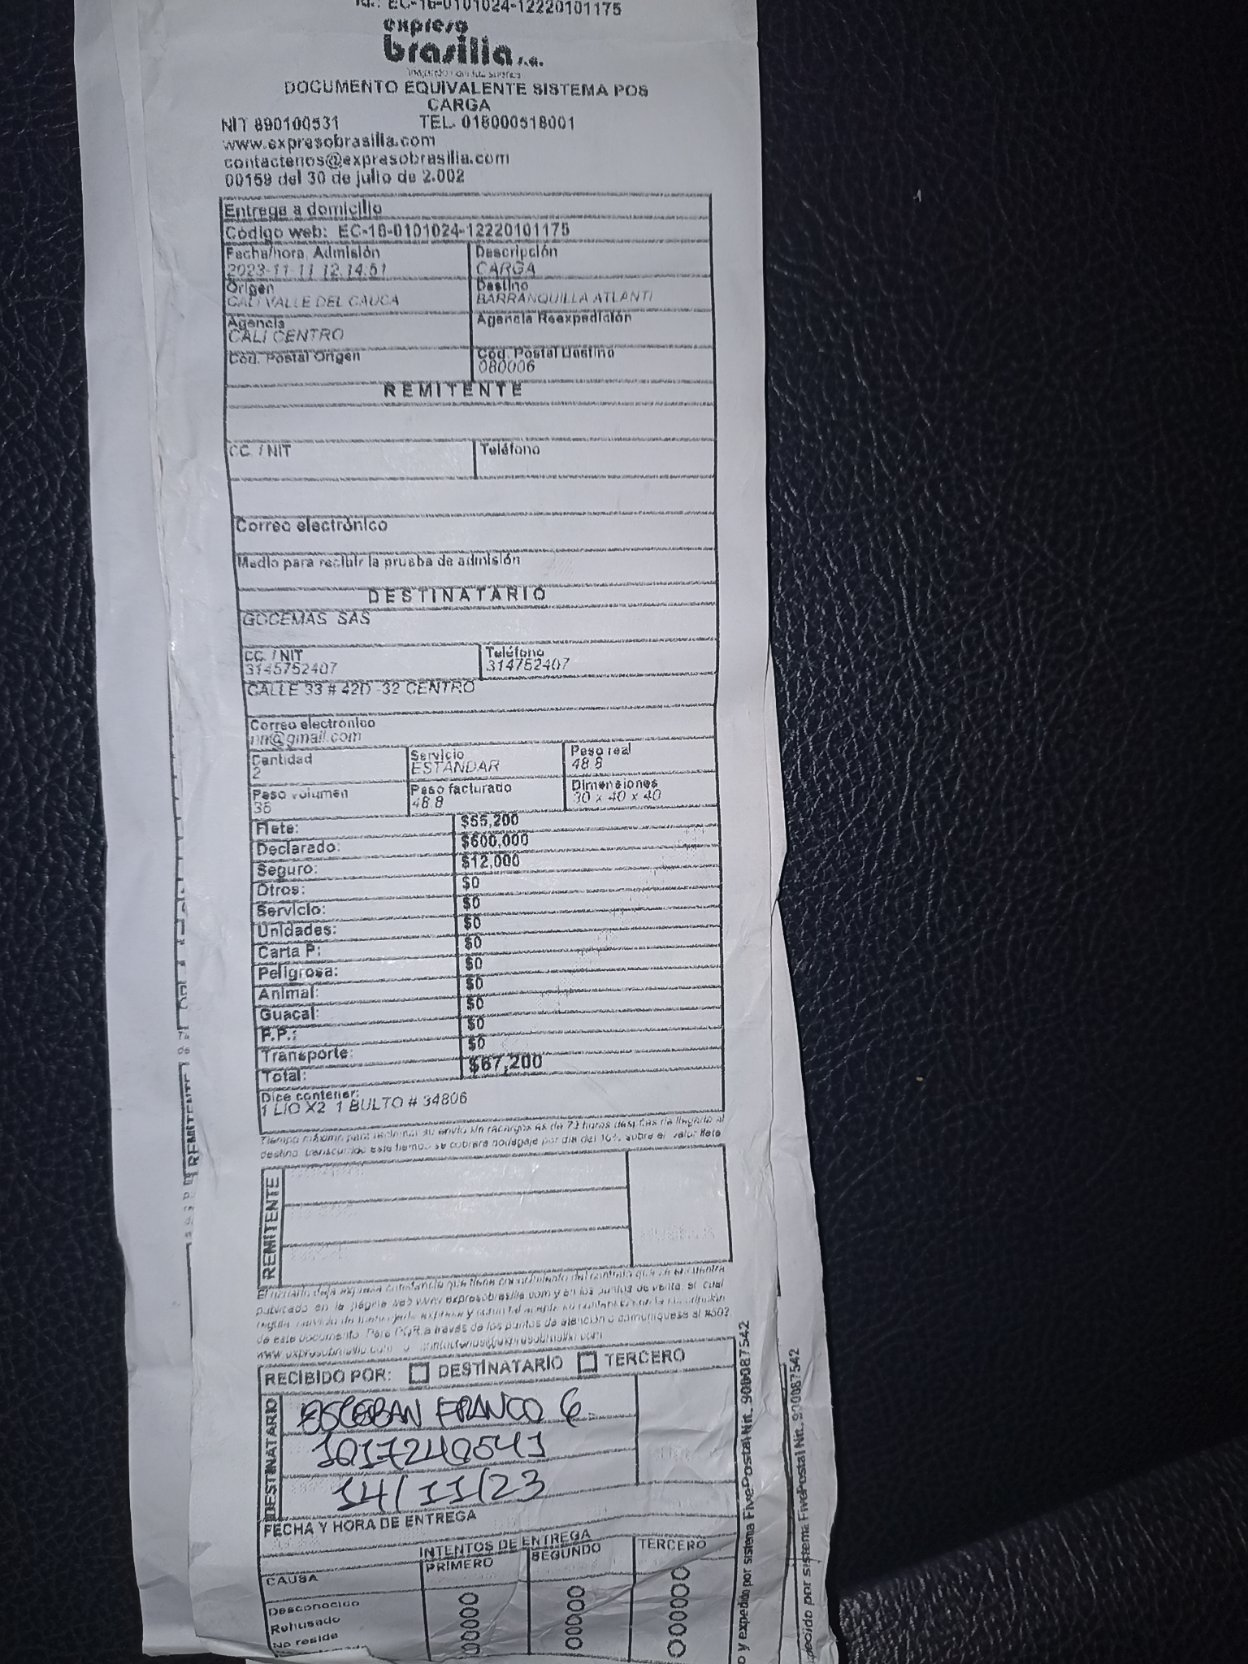 Id.: EC-16-0101024-12220101175
expreso
brasilia s.a.
DOCUMENTO EQUIVALENTE SISTEMA POS
CARGA
NIT 890100531 TEL. 018000518001
www.expresobrasilia.com
contactenos@expresobrasilia.com
00159 del 30 de julio de 2.002
Entrega a domicilio
Código web: EC-16-0101024-12220101175
Fecha/hora. Admisión Descripción
2023-11-11 12:14:51 CARGA
Origen Destino
CALI VALLE DEL CAUCA BARRANQUILLA ATLANTI
Agencia Agencia Reexpedición
CALI CENTRO
Cód. Postal Origen Cód. Postal Destino
080006
REMITENTE
CC. / NIT Teléfono
Correo electrónico
Medio para recibir la prueba de admisión
DESTINATARIO
GOCEMAS SAS
CC. / NIT Teléfono
3145752407 314752407
CALLE 33 # 42D -32 CENTRO
Correo electronico
nn@gmail.com
Cantidad Servicio Peso real
2 ESTANDAR 48.8
Peso volumen Peso facturado Dimensiones
36 48.8 30 x 40 x 40
Flete: $55,200
Declarado: $600,000
Seguro: $12,000
Otros: $0
Servicio: $0
Unidades: $0
Carta P: $0
Peligrosa: $0
Animal: $0
Guacal: $0
P.P.: $0
Transporte: $0
Total: $67,200
Dice contener:
1 LIO X2 1 BULTO # 34806
Tiempo máximo para reclamar su envío sin recargos es de 72 horas después de llegado al
destino, transcurrido este tiempo se cobrará bodegaje por día del 10% sobre el valor flete
REMITENTE
El usuario deja expresa constancia que tiene conocimiento del contrato que se encuentra
publicado en la página web www.expresobrasilia.com y en los puntos de venta, el cual
de este documento. Para PQR a través de los puntos de atención o comuníquese al #502
RECIBIDO POR: DESTINATARIO TERCERO
DESTINATARIO
ESTEBAN FRANCO G.
1017240541
14/11/23
FECHA Y HORA DE ENTREGA
INTENTOS DE ENTREGA
CAUSA PRIMERO SEGUNDO TERCERO
Desconocido
Rehusado
No reside
o y expedido por sistema FivePostal Nit.. 900087542
pecido por sistema FivePostal Nit.. 900087542
REMITENTE